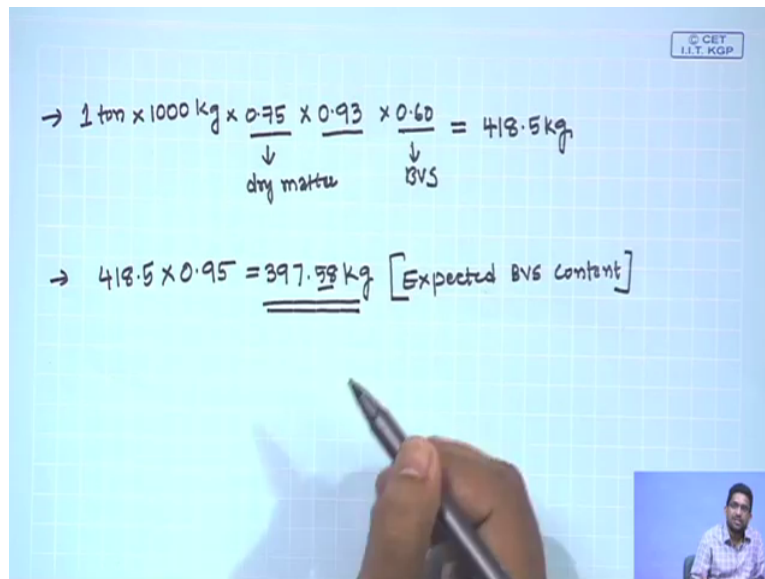 © CET
I.I.T. KGP
→ 1 ton × 1000 kg × 0.75 × 0.93 × 0.60 = 418.5 kg
↓ ↓
dry matter BVS
→ 418.5 × 0.95 = 397.58 kg [Expected BVS content]